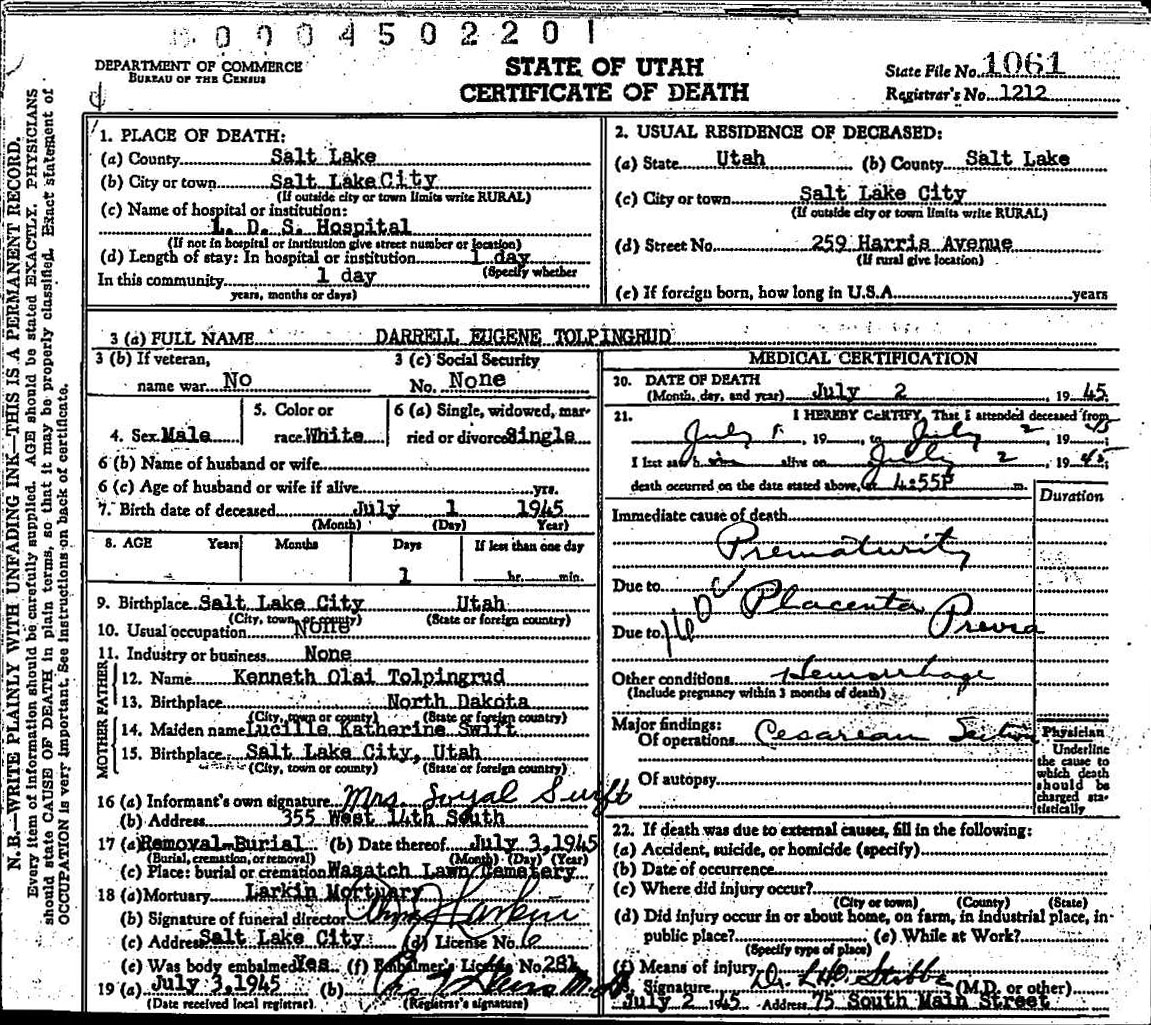 0004502201
DEPARTMENT OF COMMERCE
BUREAU OF THE CENSUS
STATE OF UTAH
CERTIFICATE OF DEATH
State File No. 1061
Registrar's No. 1212
N.B.—WRITE PLAINLY WITH UNFADING INK—THIS IS A PERMANENT RECORD.
Every item of information should be carefully supplied. AGE should be stated EXACTLY. PHYSICIANS
should state CAUSE OF DEATH in plain terms, so that it may be properly classified. Exact statement of
OCCUPATION is very important. See instructions on back of certificate.
1. PLACE OF DEATH:
(a) County Salt Lake
(b) City or town Salt Lake City
(If outside city or town limits write RURAL)
(c) Name of hospital or institution:
L. D. S. Hospital
(If not in hospital or institution give street number or location)
(d) Length of stay: In hospital or institution 1 day
(Specify whether
In this community 1 day
years, months or days)
2. USUAL RESIDENCE OF DECEASED:
(a) State Utah (b) County Salt Lake
(c) City or town Salt Lake City
(If outside city or town limits write RURAL)
(d) Street No. 259 Harris Avenue
(If rural give location)
(e) If foreign born, how long in U.S.A. years
3 (a) FULL NAME DARRELL EUGENE TOLPINGRUD
3 (b) If veteran,
name war No
3 (c) Social Security
No. None
4. Sex Male
5. Color or
race White
6 (a) Single, widowed, mar-
ried or divorced Single
6 (b) Name of husband or wife
6 (c) Age of husband or wife if alive yrs.
7. Birth date of deceased July 1 1945
(Month) (Day) Year)
8. AGE Years Months Days If less than one day
1 hr. min.
9. Birthplace Salt Lake City Utah
(City, town or county) (State or foreign country)
10. Usual occupation None
11. Industry or business None
FATHER
12. Name Kenneth Olai Tolpingrud
13. Birthplace North Dakota
(City, town or county) (State or foreign country)
MOTHER
14. Maiden name Lucille Katherine Swift
15. Birthplace Salt Lake City, Utah
(City, town or county) (State or foreign country)
16 (a) Informant's own signature Mrs. Loyal Swift
(b) Address 355 West 14th South
17 (a) Removal-Burial (b) Date thereof July 3, 1945
(Burial, cremation, or removal) (Month) (Day) (Year)
(c) Place: burial or cremation Wasatch Lawn Cemetery
18 (a) Mortuary Larkin Mortuary
(b) Signature of funeral director Larkin
(c) Address Salt Lake City (d) License No. 6
(e) Was body embalmed Yes (f) Embalmer's License No. 281
19 (a) July 3, 1945 (b) M.D.
(Date received local registrar) (Registrar's signature)
MEDICAL CERTIFICATION
20. DATE OF DEATH
(Month, day, and year) July 2 1945
21. I HEREBY CERTIFY, That I attended deceased from
July 1, 19 to July 2 1945
I last saw him alive on July 2, 1945
death occurred on the date stated above, at 4:55P m.
Duration
Immediate cause of death
Prematurity
Due to Placenta
Due to 160c Previa
Other conditions Hemorrhage
(Include pregnancy within 3 months of death)
Major findings:
Of operations Cesarean Section
Of autopsy
Physician
Underline
the cause to
which death
should be
charged sta-
tistically
22. If death was due to external causes, fill in the following:
(a) Accident, suicide, or homicide (specify)
(b) Date of occurrence
(c) Where did injury occur?
(City or town) (County) (State)
(d) Did injury occur in or about home, on farm, in industrial place, in
public place? (e) While at Work?
(Specify type of place)
(f) Means of injury
Signature Dr. (M.D. or other)
July 2 1945 Address 75 South Main Street